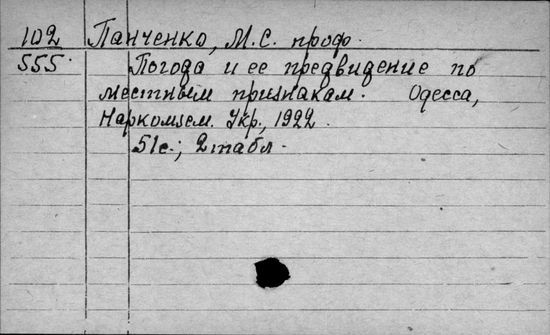 102 Панченко, М.С. проф.
555. Погода и ее предвидение по
местным признакам. Одесса,
Наркомзем. Укр., 1922.
51с.; 2 табл.